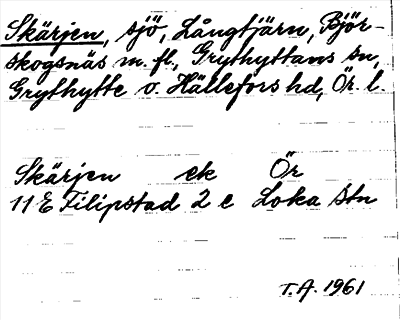 Skärjen, sjö, Långtjärn, Björ-
skogsnäs m. fl., Grythyttans sn,
Grythytte o. Hällefors hd, Ör. l.
Skärjen ek Ör
11 E Filipstad 2 e Loka stn
T.A. 1961